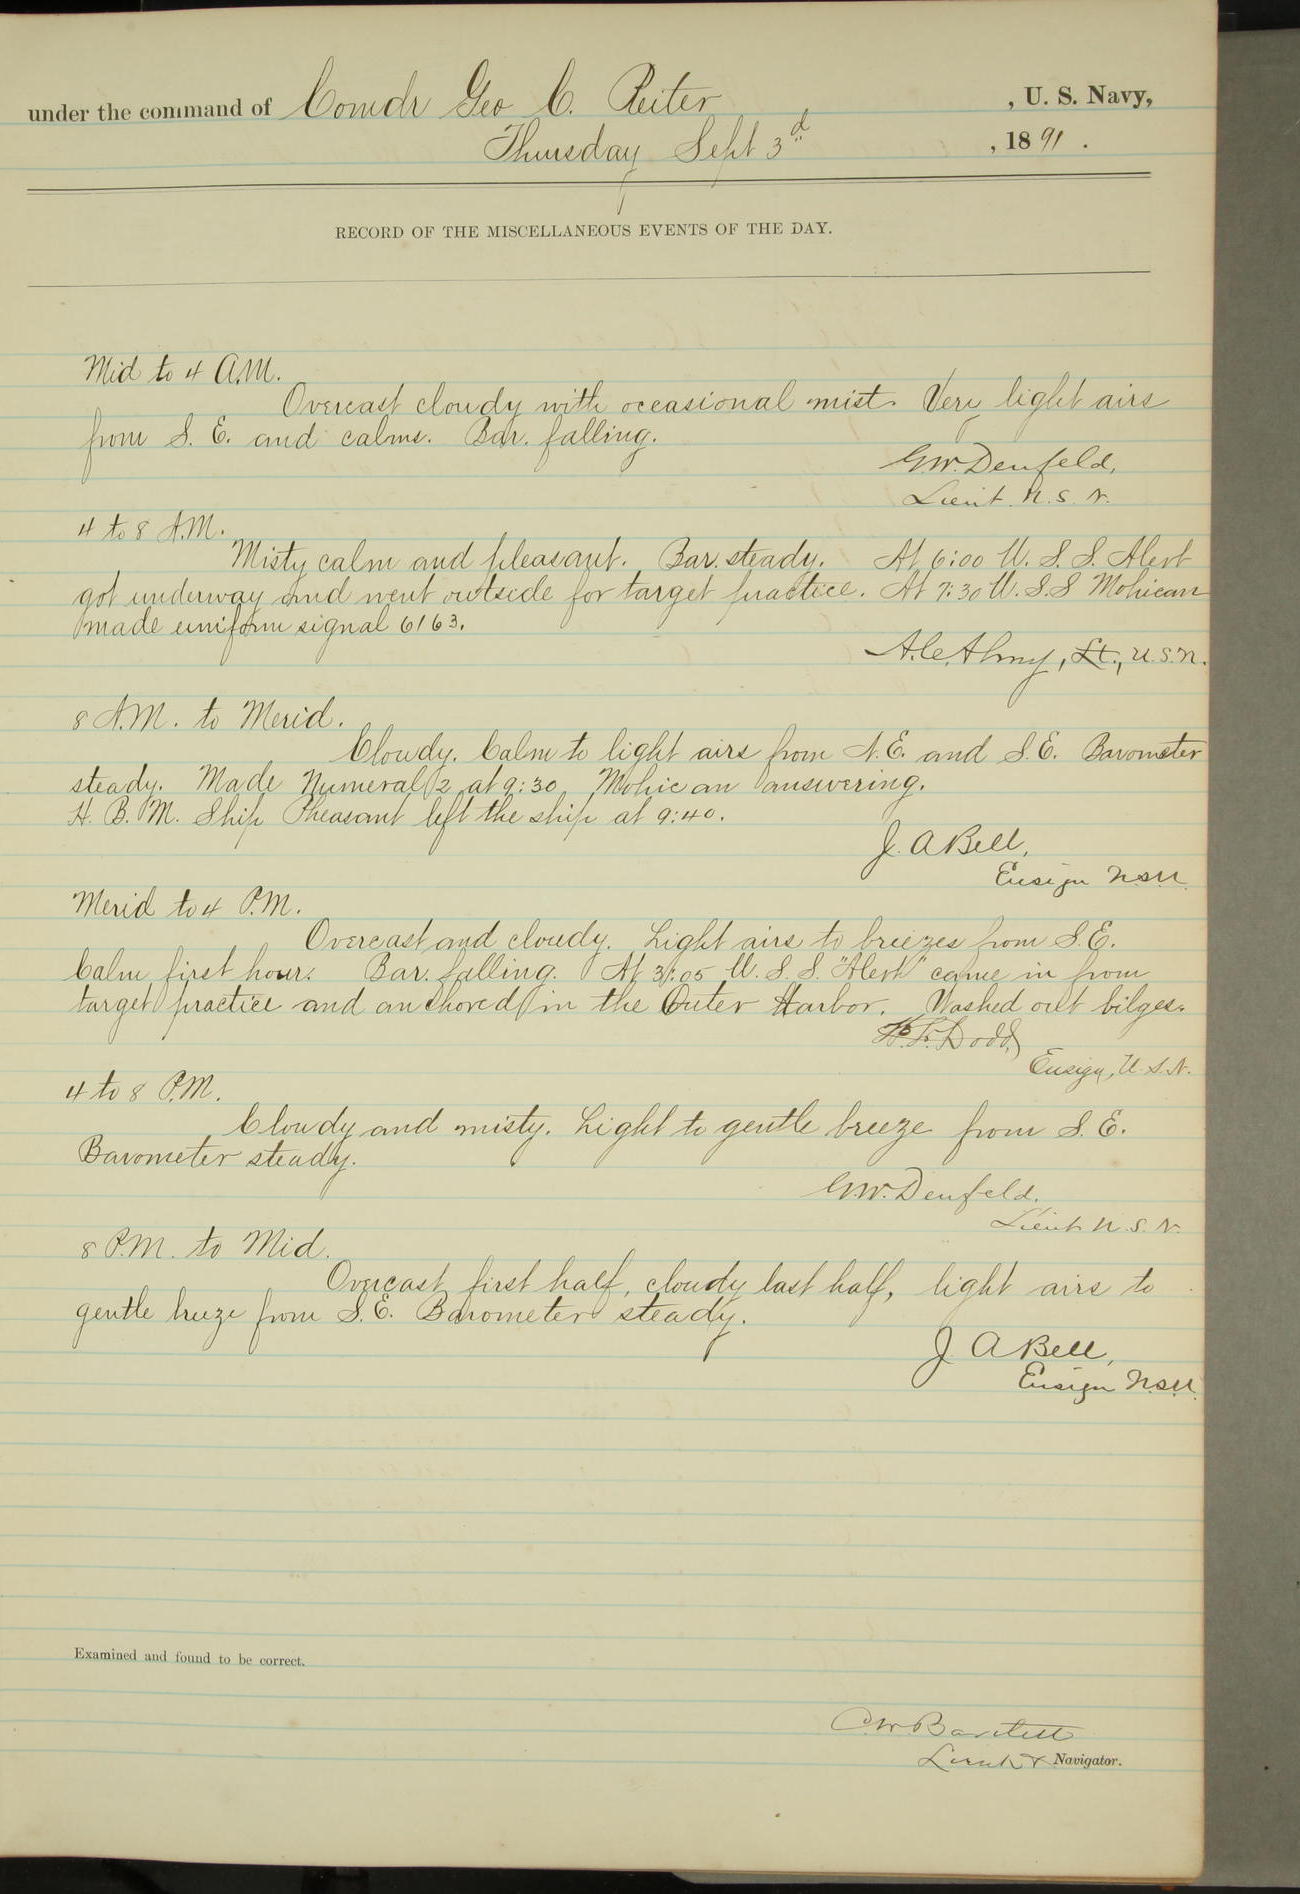 under the command of Comdr Geo C. Reiter, U. S. Navy,
Thursday Sept 3d, 1891.
RECORD OF THE MISCELLANEOUS EVENTS OF THE DAY.
Mid to 4 A.M.
Overcast cloudy with occasional mist. Very light airs
from S. E. and calms. Bar. falling.
G.W. Denfeld,
Lieut. U. S. N.
4 to 8 A.M.
Misty calm and pleasant. Bar. steady. At 6:00 U. S. S. Alert
got underway and went outside for target practice. At 7:30 U. S. S Mohican
made uniform signal 6163.
A.C. Almy, Lt., U.S.N.
8 A.M. to Merid.
Cloudy. Calm to light airs from N.E. and S.E. Barometer
steady. Made Numeral 2 at 9:30 Mohican answering.
H. B. M. Ship Pheasant left the ship at 9:40.
J. A Bell,
Ensign U.S.N.
Merid to 4 P.M.
Overcast and cloudy. Light airs to breezes from S.E.
Calm first hour. Bar. falling. At 3:05 U. S. S. "Alert" came in from
target practice and anchored in the Outer Harbor. Washed out bilges.
Dodd,
Ensign, U.S.N.
4 to 8 P.M.
Cloudy and misty. Light to gentle breeze from S. E.
Barometer steady.
G.W. Denfeld.
Lieut U. S. N.
8 P.M. to Mid.
Overcast first half, cloudy last half, light airs to
gentle breeze from S. E. Barometer steady.
J. A Bell,
Ensign U.S.N.
Examined and found to be correct.
C.W. Bartlett
Lieut & Navigator.